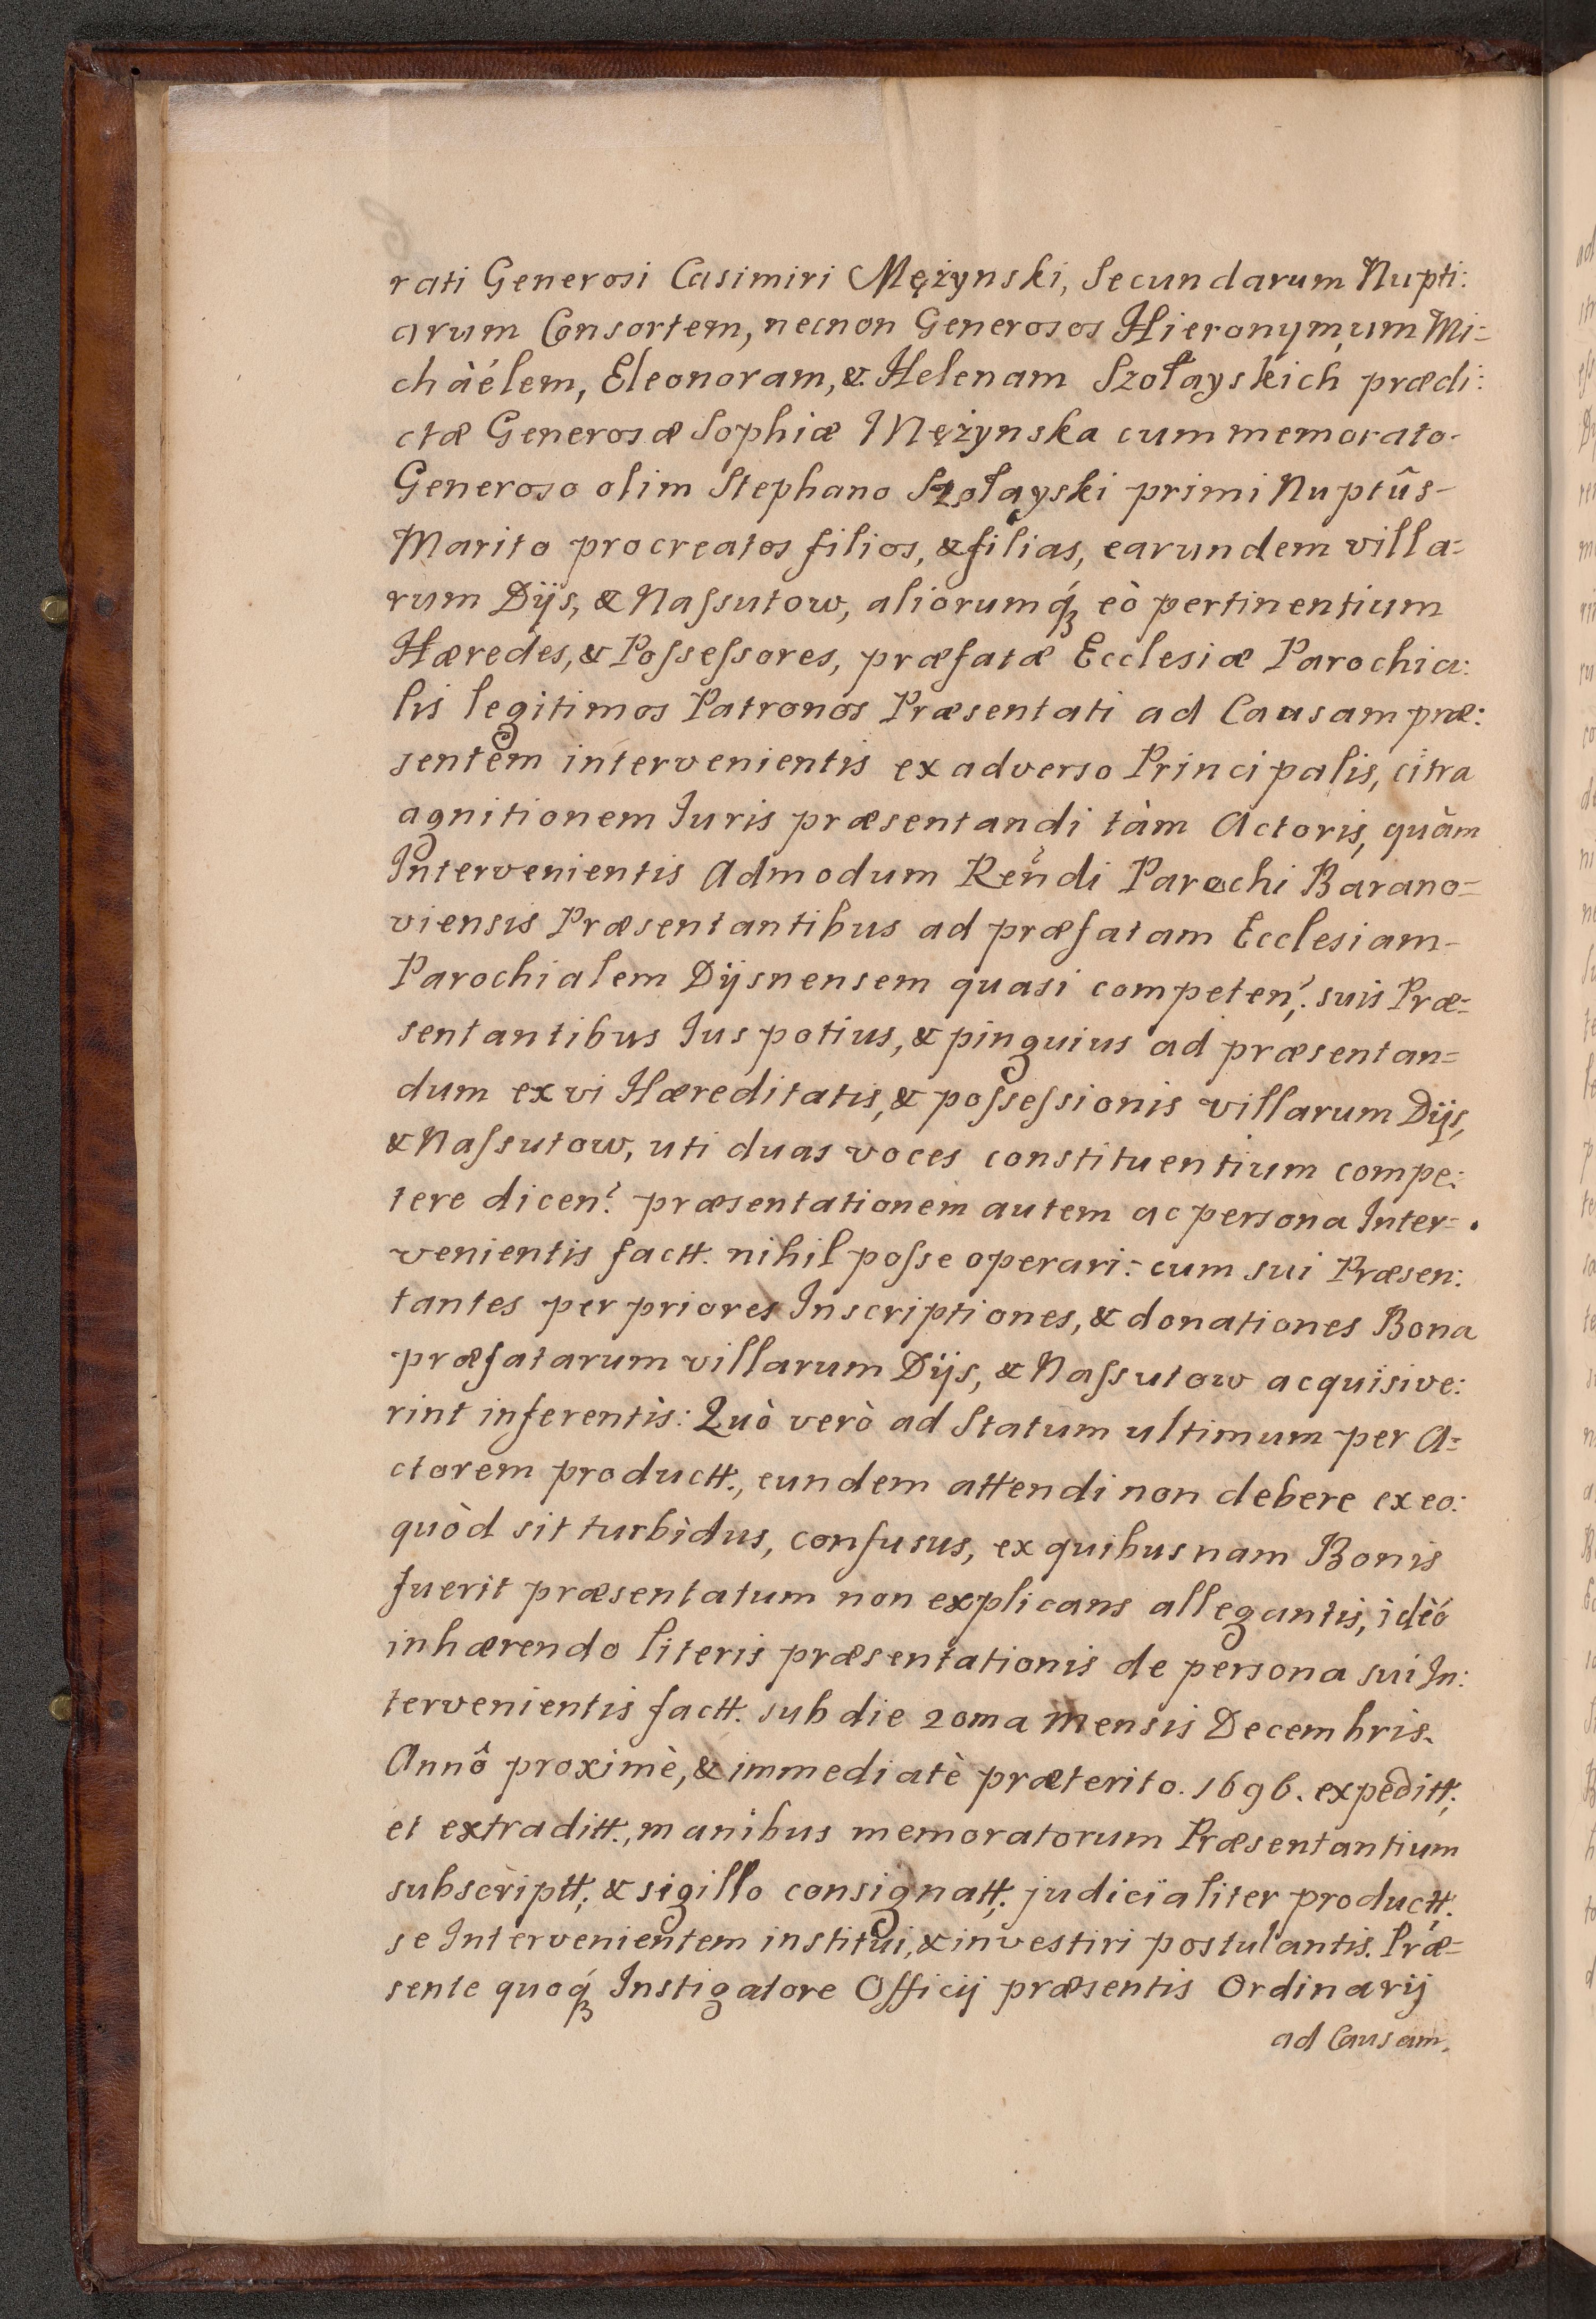 rati Generosi Casimiri Mężynski, Secundarum Nupti:
arum Consortem, necnon Generosos Hieronymum Mi=
chàélem, Eleonoram, & Helenam Szołayskich prædi:
ctæ Generosæ Sophiæ Mężynska cum memorato-
Generoso olim Stephano Szołayski primi Nuptûs-
Marito procreatos filios, & filias, earundem villa=
rum Dijs, & Naſsutow, aliorumq́ꝫ eò pertinentium
Hæredes, & Poſseſsores, præfatæ Ecclesiæ Parochia:
lis legitimos Patronos Præsentati ad Causam præ:
sentem intervenientis ex adverso Principalis, citra
agnitionem Iuris præsentandi tàm Actoris, quàm
Intervenientis Admodum Reñdi Parochi Barano=
viensis Præsentantibus ad præfatam Ecclesiam-
Parochialem Dijsnensem quasi competen̉: suis Præ=
sentantibus Ius potius, & pinguius ad præsentan=
dum ex vi Hæreditatis, & poſseſsionis villarum Dijs,
& Naſsutow, uti duas voces constituentium compe:
tere dicen̉ præsentationem autem ac persona Inter=.
venientis factt. nihil poſse operari: cum sui Præsen:
tantes per priores Inscriptiones, & donationes Bona
præfatarum villarum Dijs, & Naſsutow acquisive:
rint inferentis: Quò verò ad Statum ultimum per A=
ctorem productt., eundem attendi non debere ex eo:
quòd sit turbidus, confusus, ex quibusnam Bonis
fuerit præsentatum non explicans allegantis, idèó
inhærendo literis præsentationis de persona sui In:
tervenientis factt. sub die 20ma Mensis Decembris.
Annô proximè, & immediatè præterito. 1696. expeditt;
et extraditt., manibus memoratorum Præsentantium
subscriptt; & sigillo consignatt; judicialiter productt.
se Intervenientem institui, & investiri postulantis. Præ=
sente quoq́ꝫ Instigatore Officij præsentis Ordinarij
ad Causam.